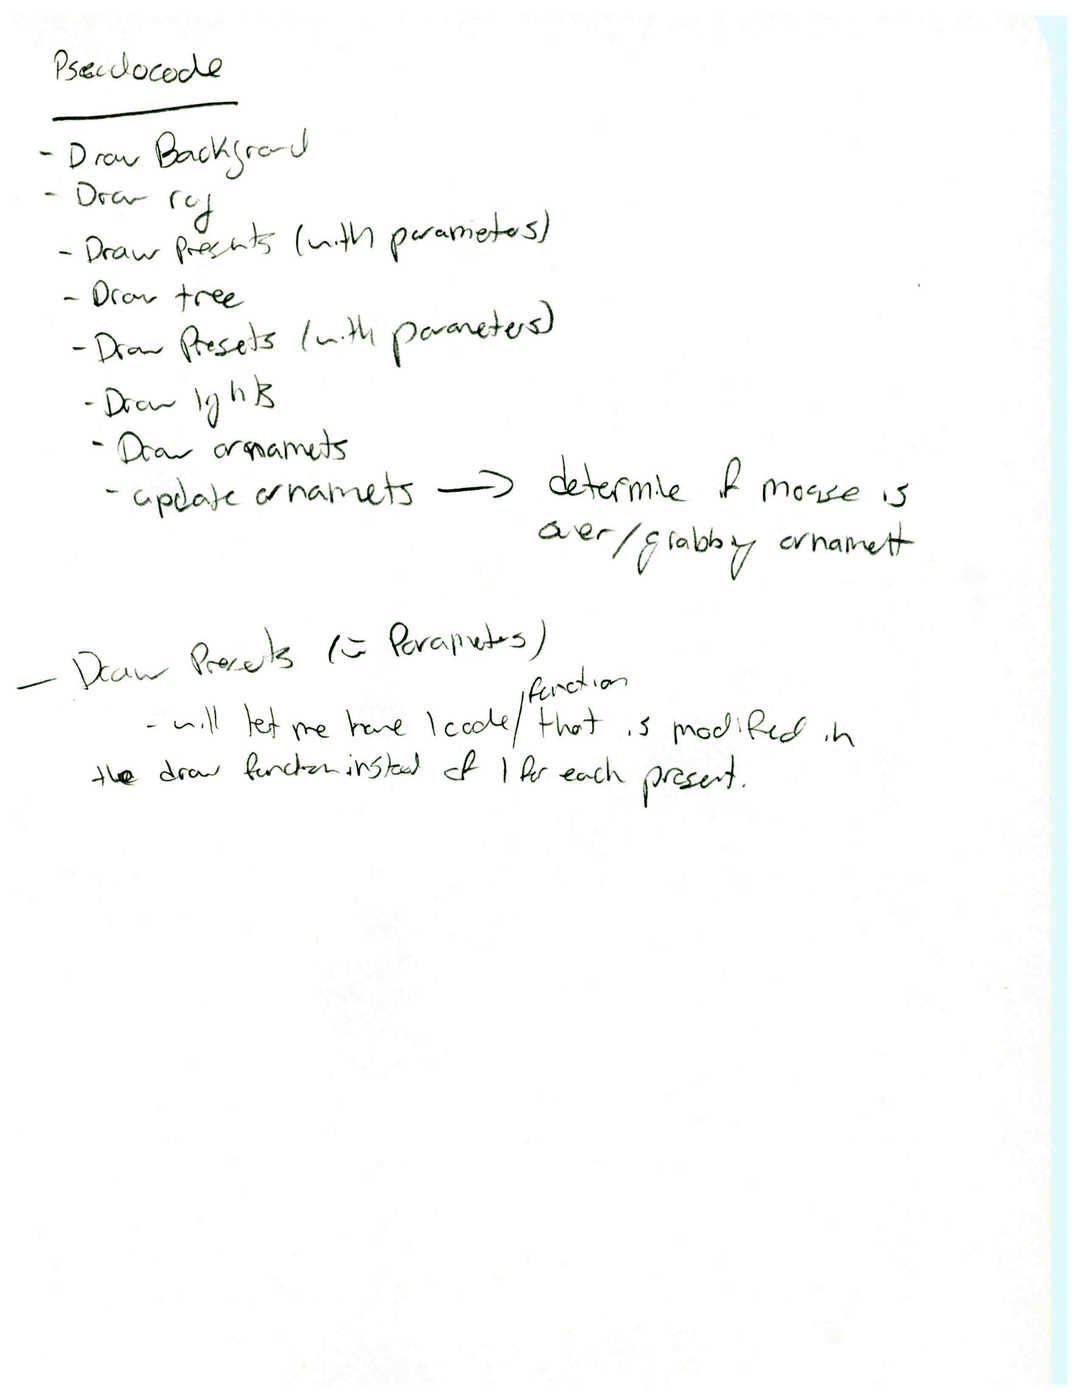 Pseudocode
- Draw Background
- Draw rug
- Draw Presents (with parameters)
- Draw tree
- Draw Presets (with parameters)
- Draw lights
- Draw ornamets
- update ornamets → determine if mouse is
over/grabbing ornamett
- Draw Presents ( Parameters)
function
- will let me have 1 code/ that is modified in
the draw function instead of 1 for each present.